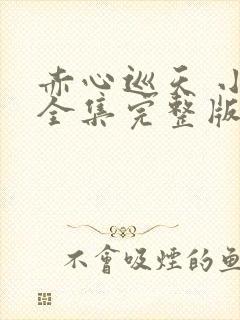 赤心巡天 小
全集完整版
不會吸煙的魚